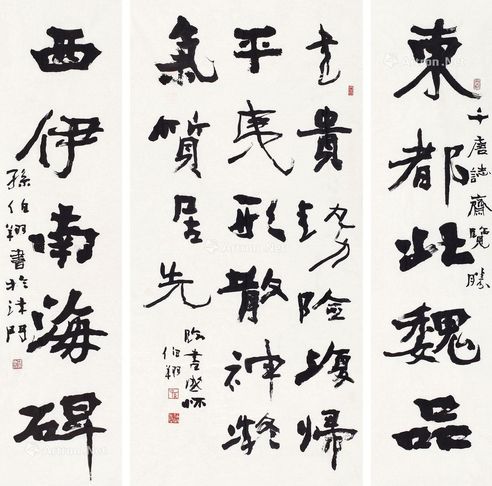 東都此魏品
千唐誌齋覽勝
书貴功力險復歸
平夷形散神凝
氣質居先
臨書感怀
伯翔
西伊南海碑
孫伯翔書於津門